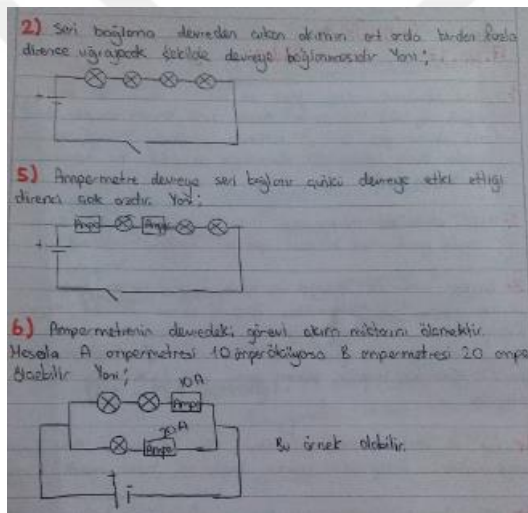 2) Seri bağlama devreden çıkan akımın art arda birden fazla
dirence uğrayacak şekilde devreye bağlanmasıdır Yani;
5) Ampermetre devreye seri bağlanır çünkü devreye etki ettiği
direnci çok azdır. Yani;
Amper
Amper
6) Ampermetrenin devredeki görevi akım miktarını ölçmektir.
Mesela A ampermetresi 10 amper ölçüyorsa B ampermetresi 20 ampe
ölçebilir Yani;
10A
Amper
20A
Amper
Bu örnek olabilir.